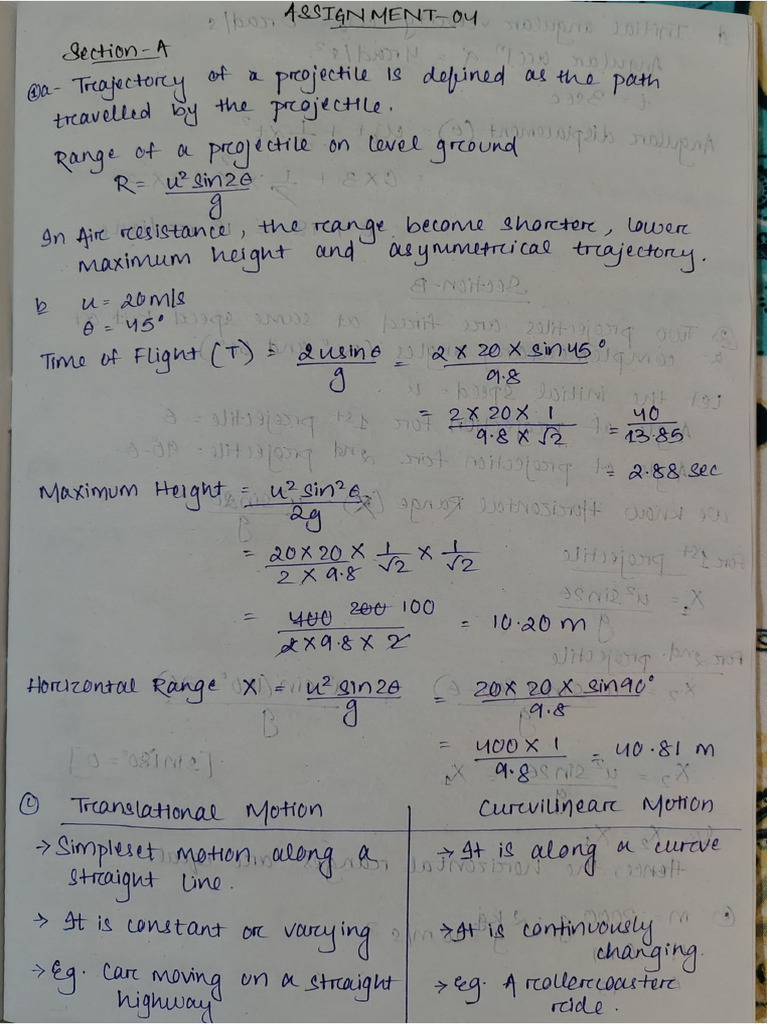 ASSIGNMENT-04
Section-A
①a- Trajectory of a projectile is defined as the path
travelled by the projectile.
Range of a projectile on level ground
R = u² sin2θ / g
In Air resistance, the range become shorter, lower
maximum height and asymmetrical trajectory.
b u = 20 m/s
θ = 45°
Time of Flight (T) = 2usinθ / g = 2 × 20 × sin45° / 9.8
= 2 × 20 × 1 / 9.8 × √2 = 40 / 13.85
= 2.88 sec
Maximum Height = u² sin²θ / 2g
= 20 × 20 × 1/√2 × 1/√2 / 2 × 9.8
= 400 200 100 / 2 × 9.8 × 2 = 10.20 m
Horizontal Range X = u² sin2θ / g = 20 × 20 × sin90° / 9.8
= 400 × 1 / 9.8 = 40.81 m
ⓒ Translational Motion Curvilinear Motion
→ Simpleset motion along a → It is along a curve
straight line.
→ It is constant or varying → It is continuously
changing.
→ Eg. Car moving on a straight → Eg. A rollercoaster
highway ride.